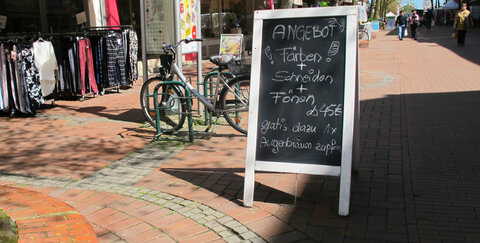 ANGEBOT
Färben
+
Schneiden
+
Fönen
ab 45€
gratis dazu 1x
Augenbraun zupfen